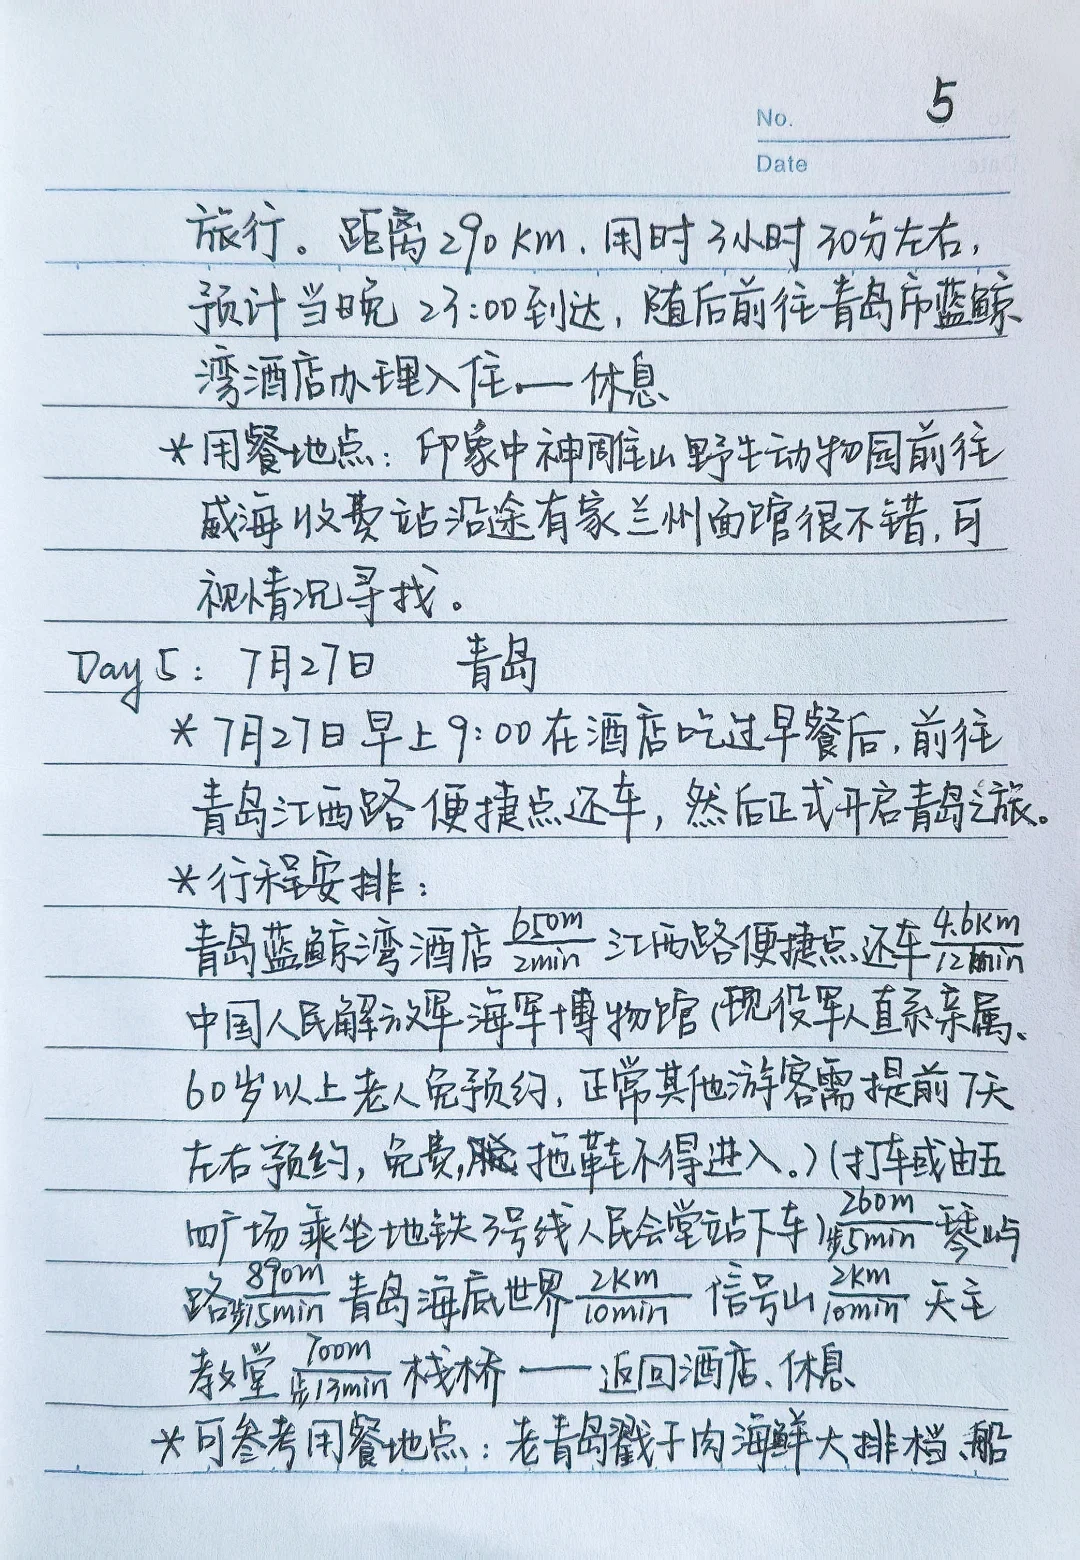 No. 5
Date
旅行。距离290km,用时3小时30分左右,
预计当晚23:00到达,随后前往青岛市蓝鲸
湾酒店办理入住——休息
*用餐地点:印象中神雕山野生动物园前往
威海收费站沿途有家兰州面馆很不错,可
视情况寻找。
Day 5: 7月27日 青岛
*7月27日早上9:00在酒店吃过早餐后,前往
青岛江西路便捷点还车,然后正式开启青岛之旅。
*行程安排:
青岛蓝鲸湾酒店 650m/2min 江西路便捷点还车 4.6km/12min
中国人民解放军海军博物馆(现役军人直系亲属、
60岁以上老人免预约,正常其他游客需提前7天
左右预约,免费,拖鞋不得进入。)(打车或由五
四广场乘坐地铁3号线人民会堂站下车) 260m/步5min 琴屿
路 890m/步15min 青岛海底世界 2km/10min 信号山 2km/10min 天主
教堂 700m/步13min 栈桥——返回酒店、休息
*可参考用餐地点:老青岛戳子肉海鲜大排档、船